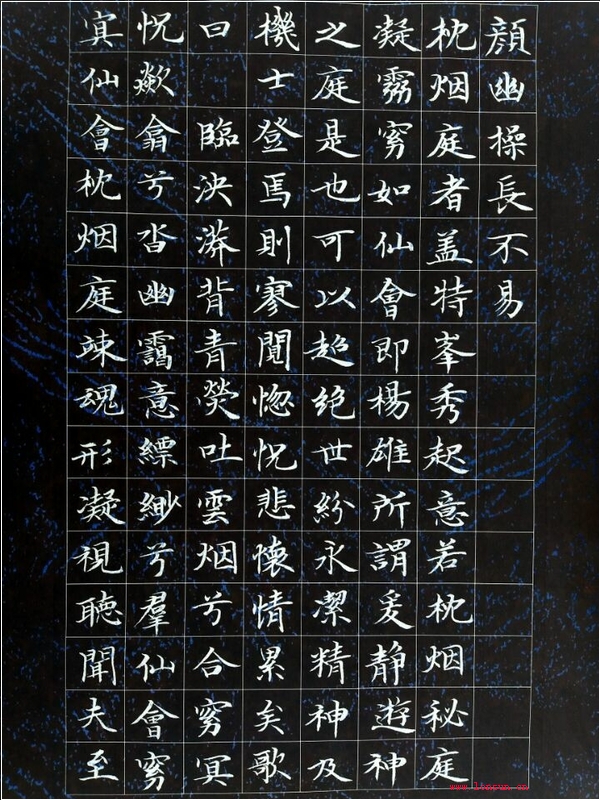 顔幽操長不易
枕烟庭者盖特峯秀起意若枕烟秘庭
凝窅如仙會即楊雄所謂爰静遊神
之庭是也可以超絶世紛永潔精神及
機士登馬則寥閴惚怳悲懷情累矣歌
曰 臨泱漭背青熒吐雲烟兮合窅冥
怳歘翕兮沓幽靄意縹緲兮羣仙會窅
冥仙會枕烟庭竦魂形凝視聴聞夫至